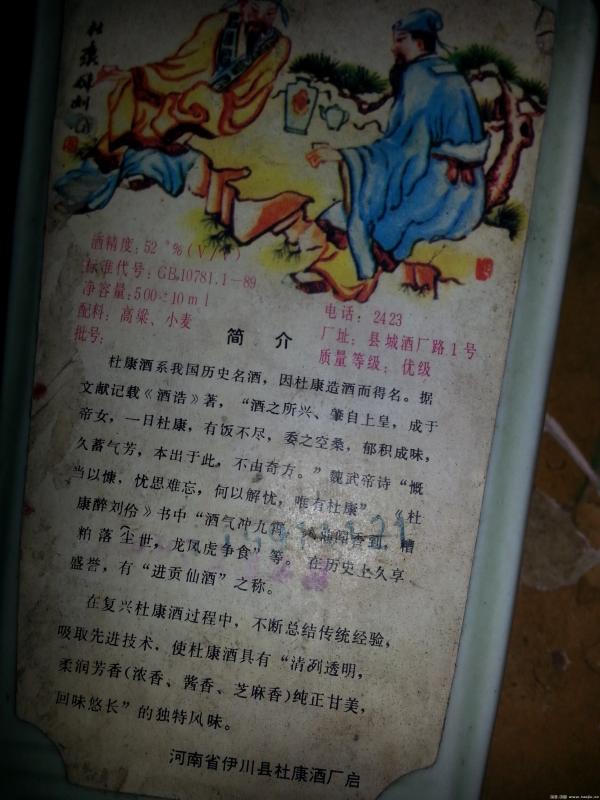 杜康醉刘伶
酒精度:52°%(V/V)
标准代号:GB10781.1-89
净容量:500±10ml
配料:高粱、小麦
批号:
电话:2423
厂址:县城酒厂路1号
质量等级:优级
简介
杜康酒系我国历史名酒,因杜康造酒而得名。据
文献记载《酒浩》著,“酒之所兴、肇自上皇,成于
帝女,一曰杜康,有饭不尽,委之空桑,郁积成味,
久蓄气芳,本出于此,不由奇方。”魏武帝诗“慨
当以慷,忧思难忘,何以解忧,唯有杜康”《杜
康醉刘伶》书中“酒气冲九霄 糟
粕落尘世,龙凤虎争食”等。在历史上久享
盛誉,有“进贡仙酒”之称。
在复兴杜康酒过程中,不断总结传统经验,
吸取先进技术,使杜康酒具有“清冽透明,
柔润芳香(浓香、酱香、芝麻香)纯正甘美,
回味悠长”的独特风味。
河南省伊川县杜康酒厂启